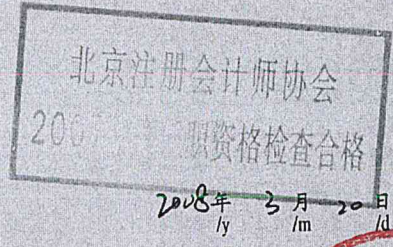 北京注册会计师协会
200 职资格检查合格
2008年 3月 20日
/y /m /d